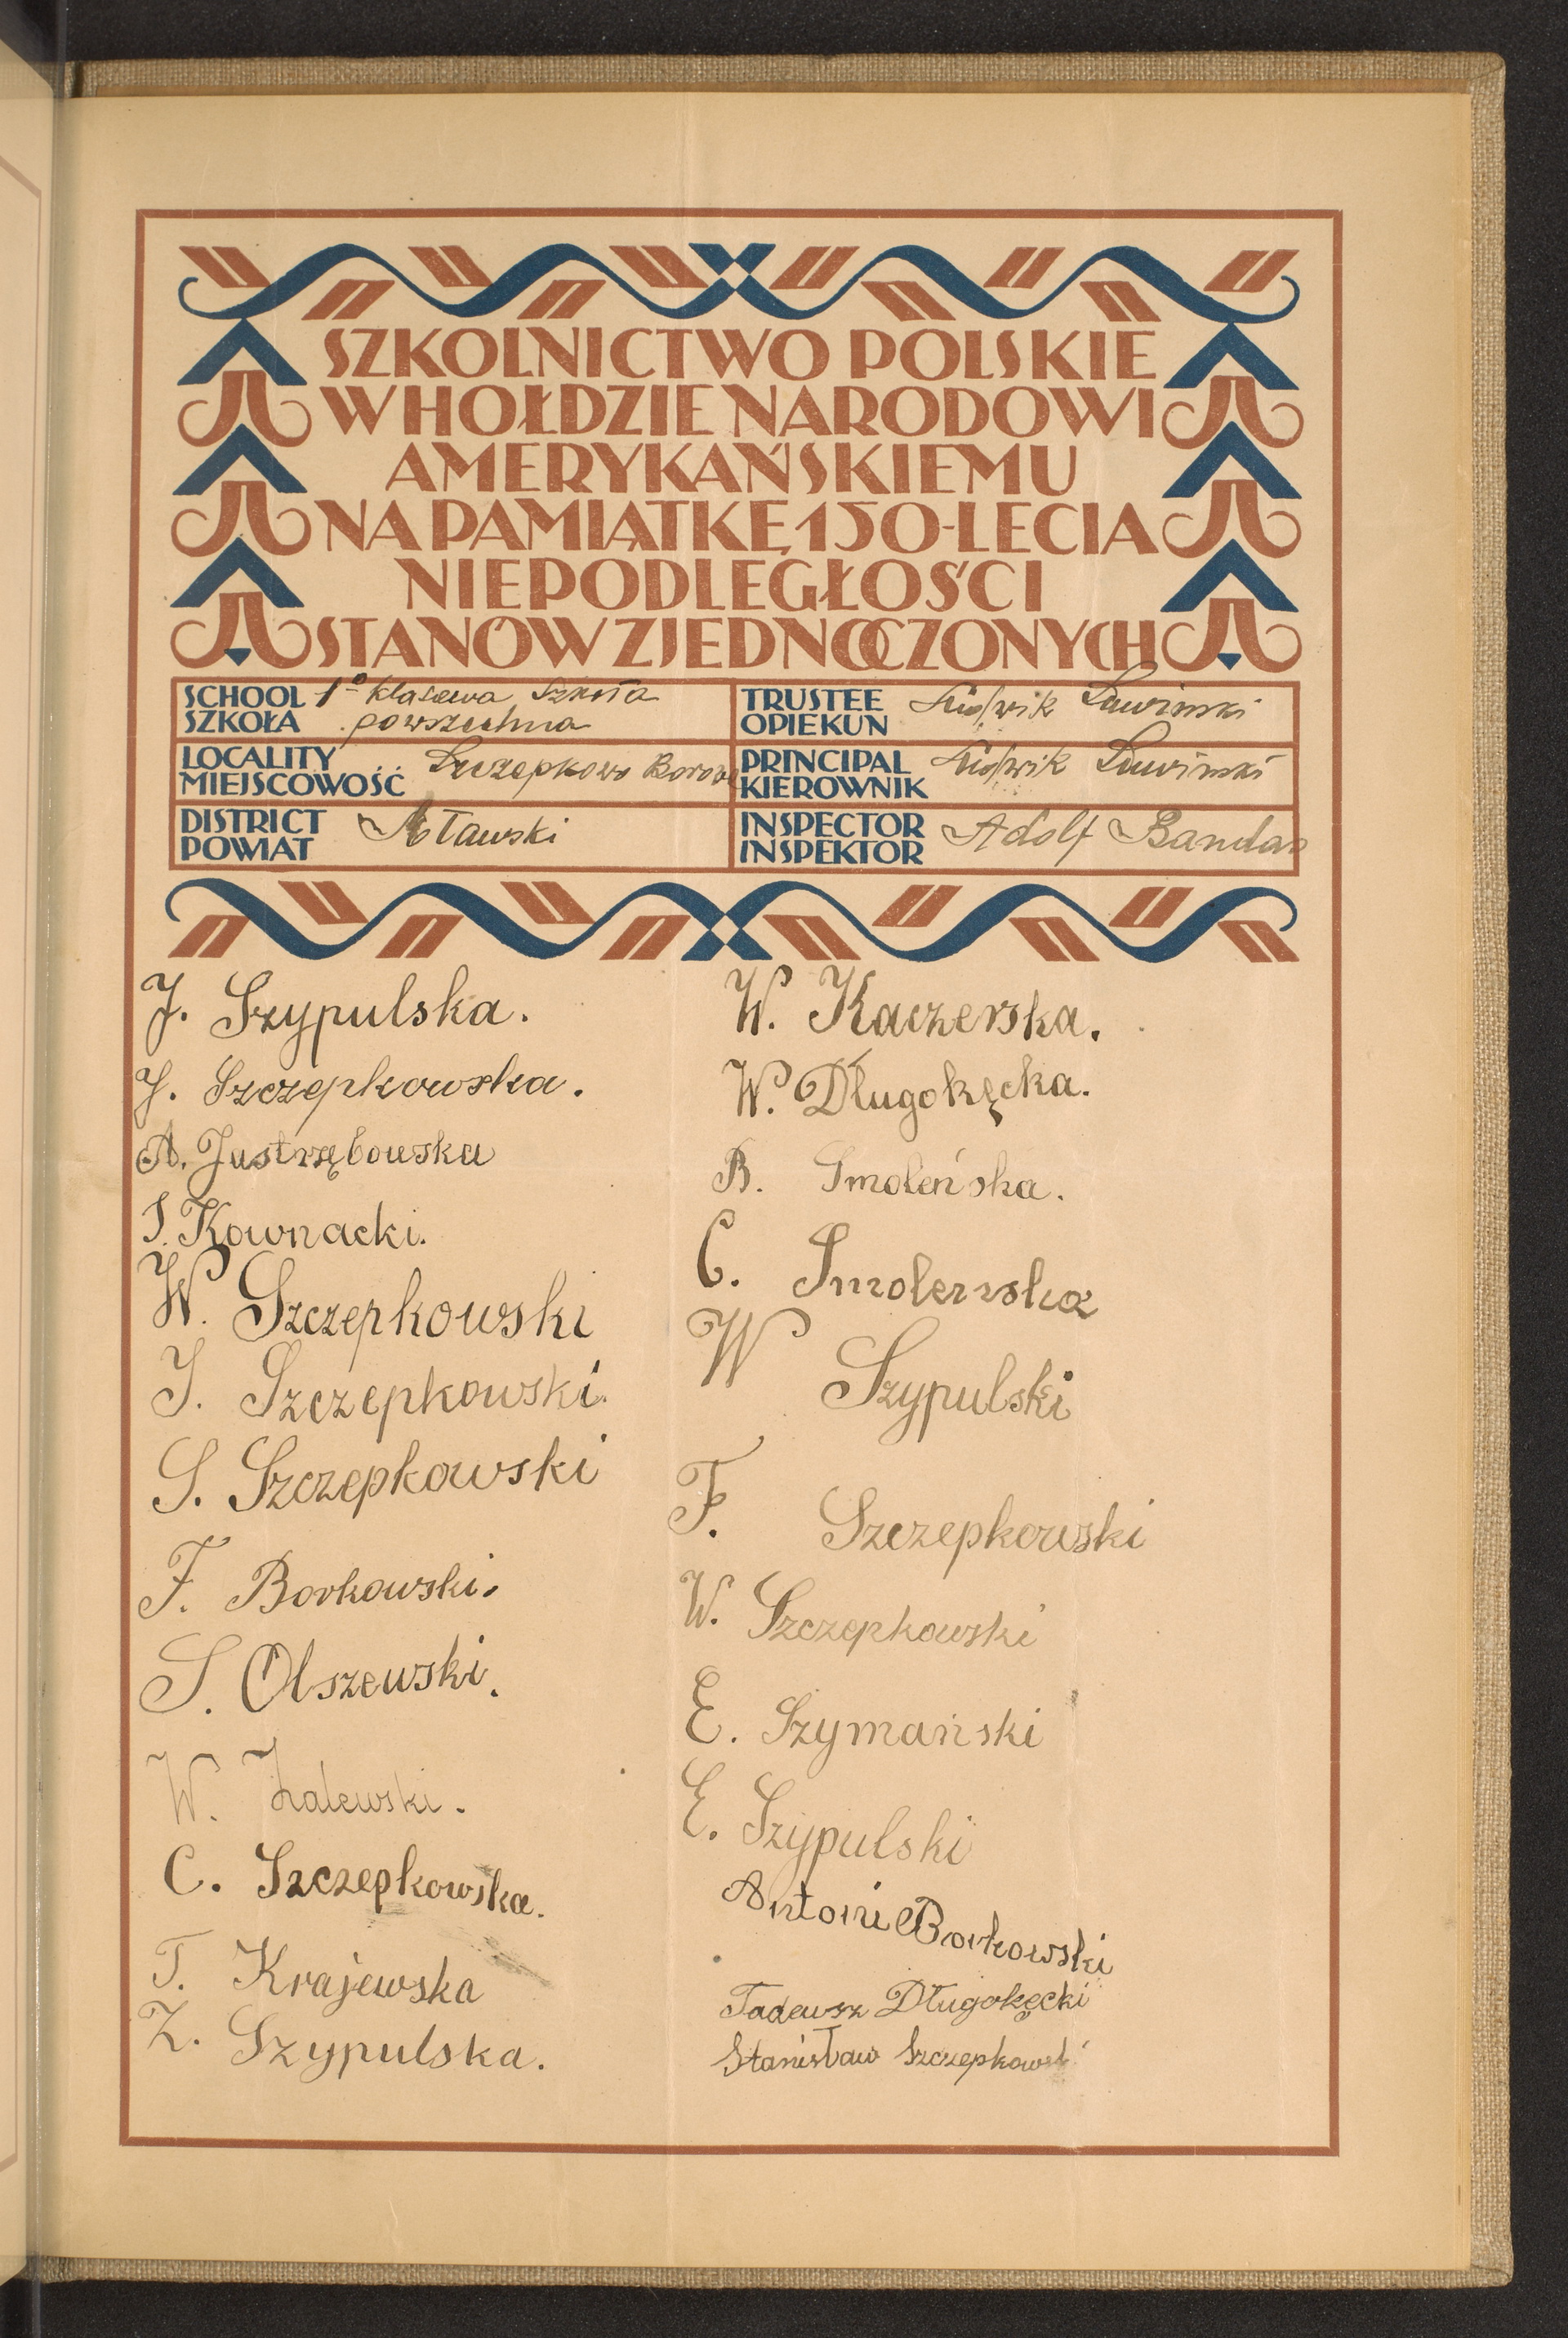 SZKOLNICTWO POLSKIE
W HOŁDZIE NARODOWI
AMERYKAŃSKIEMU
NA PAMIĄTKĘ 150-LECIA
NIEPODLEGŁOŚCI
STANÓW ZJEDNOCZONYCH
SCHOOL 1º klasowa Szkoła
SZKOŁA powszechna
TRUSTEE OPIEKUN Ludwik
LOCALITY MIEJSCOWOŚĆ Szczepkowo Borowe
PRINCIPAL KIEROWNIK Ludwik
DISTRICT POWIAT Mławski
INSPECTOR INSPEKTOR Adolf
J. Szypulska.
J. Szczepkowska.
A. Justrzębowska
S. Kownacki.
W. Szczepkowski
J. Szczepkowski.
S. Szczepkowski
F. Borkowski.
S. Olszewski.
W. Zalewski.
C. Szczepkowska.
T. Krajewska
Z. Szypulska.
W. Kaczerska.
W. Długokęcka.
B. Smoleńska.
C. Smolenska
W Szypulski
F. Szczepkowski
W. Szczepkowski
E. Szymański
E. Szypulski
Antoni Borkowski
Tadeusz Długokęcki
Stanisław Szczepkowski